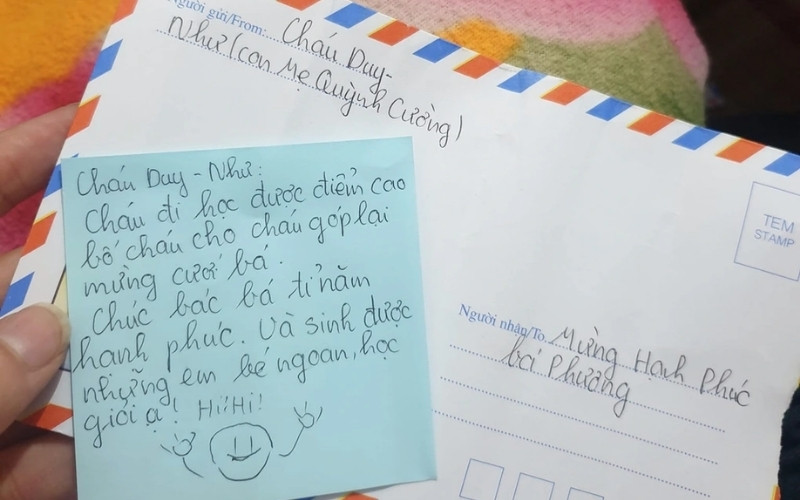 Người gửi/From: Cháu Duy-
Như (con Mẹ Quỳnh Cường)
Cháu Duy - Như:
Cháu đi học được điểm cao
bố cháu cho cháu góp lại
mừng cưới bá.
Chúc bác bá tỉ năm
hanh phúc. Và sinh được
những em bé ngoan, học
giỏi ạ! Hi!Hi!
TEM
STAMP
Người nhận/To. Mừng Hạnh Phúc
bá Phương